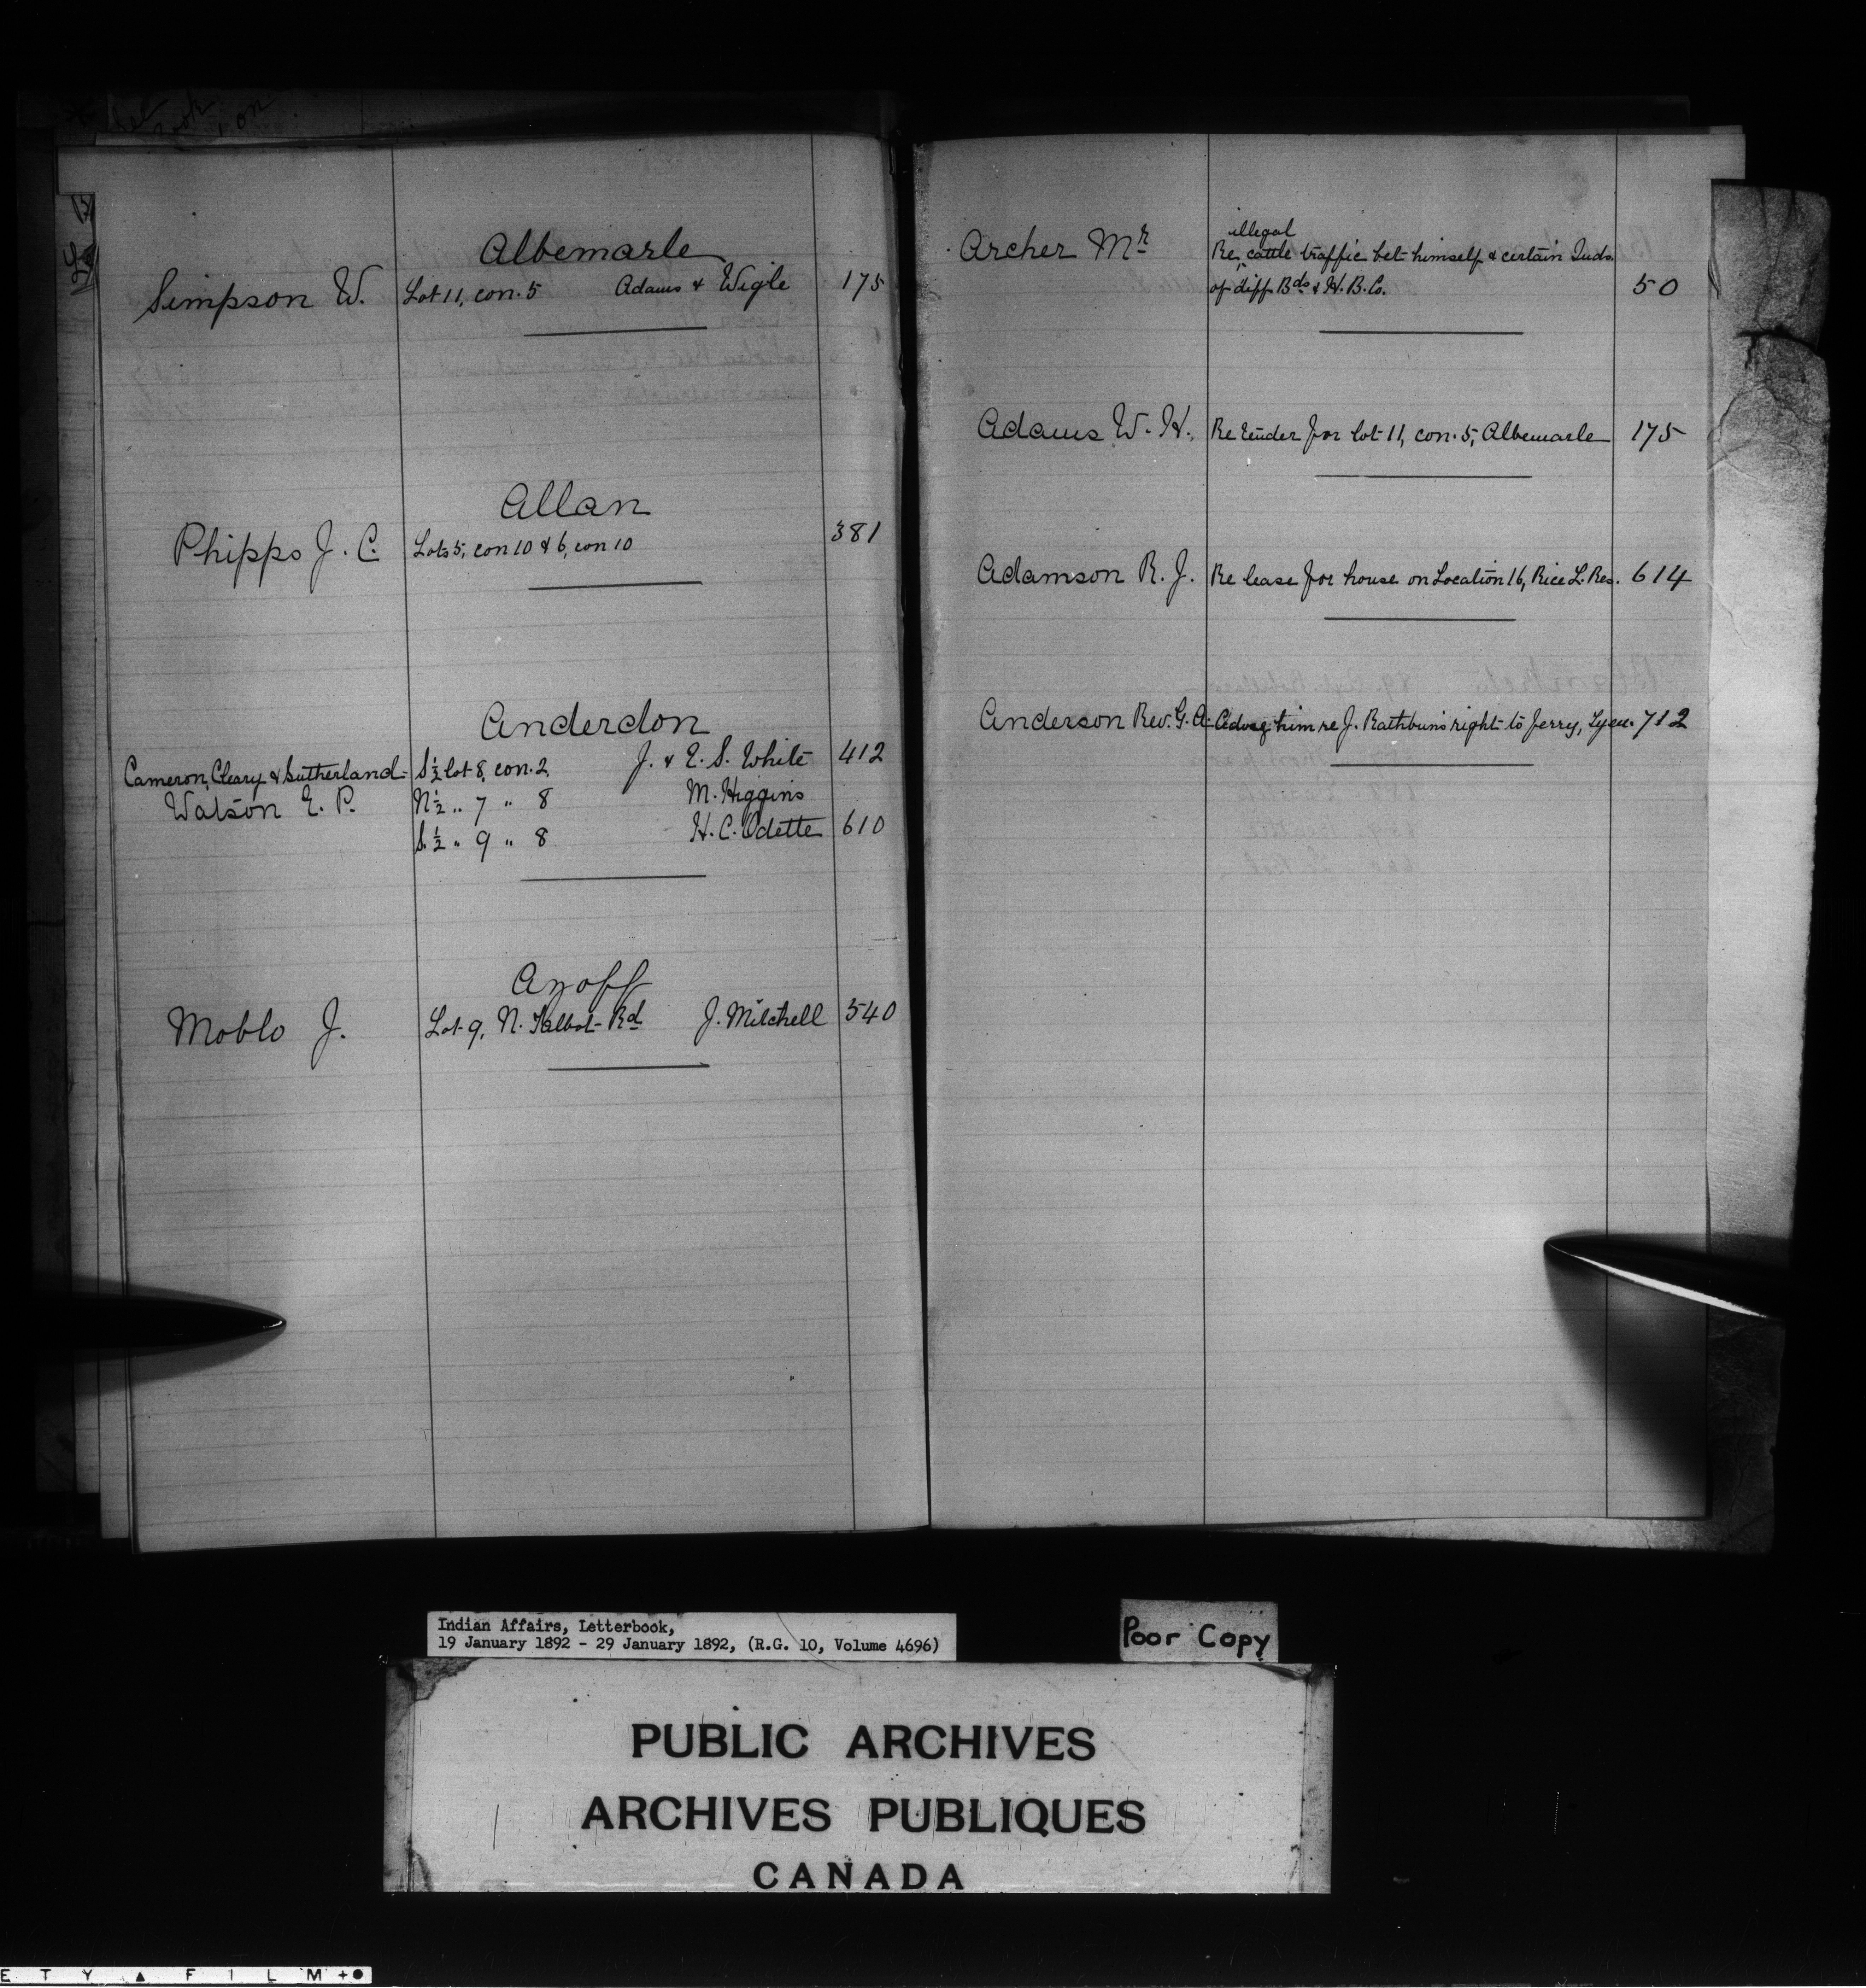 Albemarle
Simpson W. Lot 11, con. 5 Adams & Wigle 175
Allan
Phipps J. C. Lots 5, con 10 & 6, con 10 381
Anderdon
Cameron, Cleary & Sutherland S½ lot 8, con. 2 J. & E. S. White 412
Watson E. P. N½ " 7 " 8 M. Higgins
S.½ " 9 " 8 H. C. Odette 610
Azoff
Moblo J. Lot 9, N. Talbot Rd J. Mitchell 540
Archer Mr illegal
Re cattle traffic bet himself & certain Inds.
of diff Bds & H. B. Co. 50
Adams W. H. Re tender for lot 11, con. 5, Albemarle 175
Adamson R. J. Re lease for house on Location 16, Rice L. Res. 614
Anderson Rev. G. A. Advsg him re J. Rathbun's right to ferry, Tyen. 712
Indian Affairs, Letterbook,
19 January 1892 - 29 January 1892, (R.G. 10, Volume 4696)
Poor Copy
PUBLIC ARCHIVES
ARCHIVES PUBLIQUES
CANADA
E T Y ▲ F I L M +●